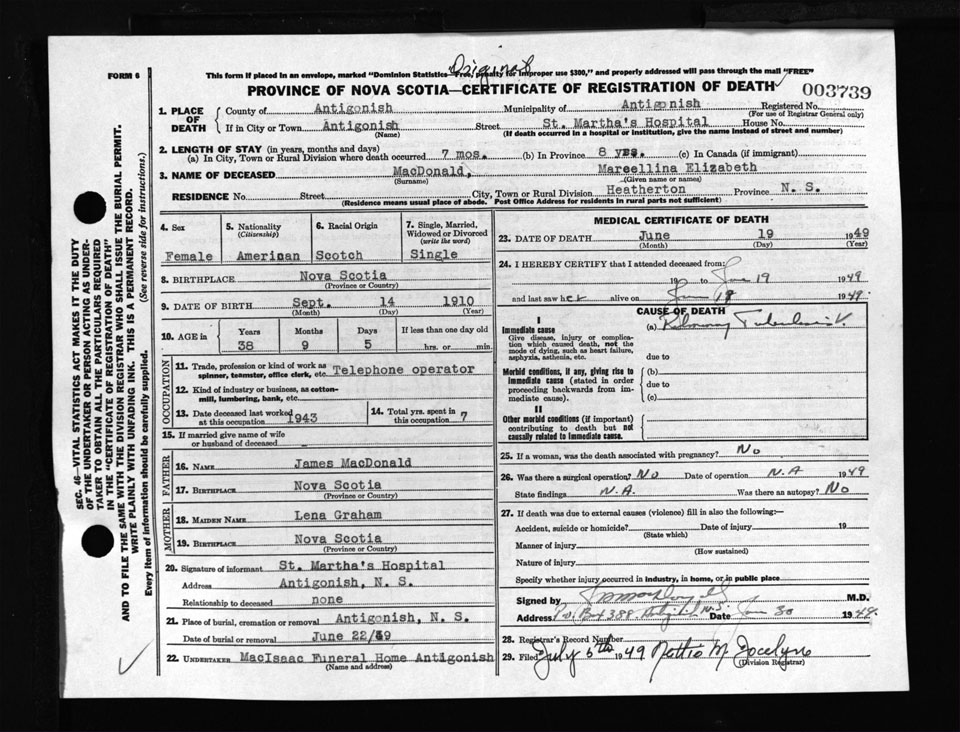 Original
FORM 6
This form if placed in an envelope, marked "Dominion Statistics—Free, penalty for improper use $300," and properly addressed will pass through the mail "FREE"
PROVINCE OF NOVA SCOTIA—CERTIFICATE OF REGISTRATION OF DEATH
003739
1. PLACE OF DEATH
County of Antigonish Municipality of Antigonish Registered No.
(For use of Registrar General only)
If in City or Town Antigonish Street St. Martha's Hospital House No.
(Name) (If death occurred in a hospital or institution, give the name instead of street and number)
2. LENGTH OF STAY (in years, months and days)
(a) In City, Town or Rural Division where death occurred 7 mos. (b) In Province 8 yrs. (c) In Canada (if immigrant)
3. NAME OF DECEASED MacDonald, Marcellina Elizabeth
(Surname) (Given name or names)
RESIDENCE No. Street City, Town or Rural Division Heatherton Province N. S.
(Residence means usual place of abode. Post Office Address for residents in rural parts not sufficient)
4. Sex 5. Nationality (Citizenship) 6. Racial Origin 7. Single, Married, Widowed or Divorced (write the word)
Female Amerinan Scotch Single
8. BIRTHPLACE Nova Scotia
(Province or Country)
9. DATE OF BIRTH Sept. 14 1910
(Month) (Day) (Year)
10. AGE in Years Months Days If less than one day old
38 9 5 hrs. or min.
OCCUPATION
11. Trade, profession or kind of work as spinner, teamster, office clerk, etc. Telephone operator
12. Kind of industry or business, as cotton-mill, lumbering, bank, etc.
13. Date deceased last worked at this occupation 1943 14. Total yrs. spent in this occupation 7
15. If married give name of wife or husband of deceased
FATHER
16. NAME James MacDonald
17. BIRTHPLACE Nova Scotia
MOTHER
18. MAIDEN NAME Lena Graham
19. BIRTHPLACE Nova Scotia
(Province or Country)
20. Signature of informant St. Martha's Hospital
Address Antigonish, N. S.
Relationship to deceased none
21. Place of burial, cremation or removal Antigonish, N. S.
Date of burial or removal June 22/49
22. UNDERTAKER MacIsaac Funeral Home Antigonish
(Name and address)
MEDICAL CERTIFICATE OF DEATH
23. DATE OF DEATH June 19 1949
(Month) (Day) (Year)
24. I HEREBY CERTIFY that I attended deceased from:
19 to June 19 1949
and last saw her alive on June 19 1949
CAUSE OF DEATH
I
Immediate cause (a) Pulmonary Tuberculosis
Give disease, injury or complication which caused death, not the mode of dying, such as heart failure, asphyxia, asthenia, etc.
due to
Morbid conditions, if any, giving rise to immediate cause (stated in order proceeding backwards from immediate cause).
(b)
due to
(c)
II
Other morbid conditions (if important) contributing to death but not causally related to immediate cause.
25. If a woman, was the death associated with pregnancy? No
26. Was there a surgical operation? No Date of operation N.A 1949
State findings N.A. Was there an autopsy? No
27. If death was due to external causes (violence) fill in also the following:—
Accident, suicide or homicide? Date of injury 19
(State which)
Manner of injury
(How sustained)
Nature of injury
Specify whether injury occurred in industry, in home, or in public place
Signed by M.D.
Address P.O. Box 388 Antigonish N.S. Date June 30 1949.
28. Registrar's Record Number
29. Filed July 5th 1949 Nettie M. Jocelyne
(Division Registrar)
SEC. 46—VITAL STATISTICS ACT MAKES IT THE DUTY
OF THE UNDERTAKER OR PERSON ACTING AS UNDER-
TAKER TO OBTAIN ALL THE PARTICULARS REQUIRED
IN THE "CERTIFICATE OF REGISTRATION OF DEATH"
AND TO FILE THE SAME WITH THE DIVISION REGISTRAR WHO SHALL ISSUE THE BURIAL PERMIT.
WRITE PLAINLY WITH UNFADING INK. THIS IS A PERMANENT RECORD.
Every item of information should be carefully supplied. (See reverse side for instructions.)